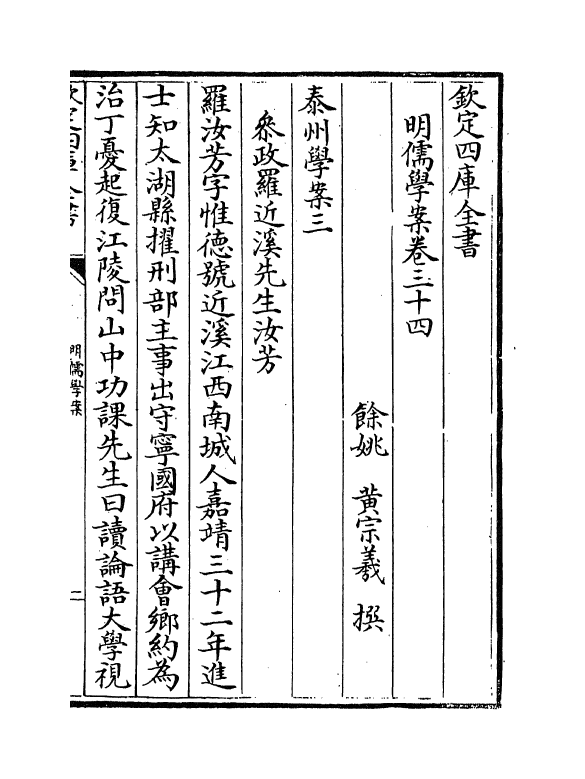 欽定四庫全書
明儒學案卷三十四
餘姚 黃宗羲 撰
泰州學案三
叅政羅近溪先生汝芳
羅汝芳字惟德號近溪江西南城人嘉靖三十二年進
士知太湖縣擢刑部主事出守寧國府以講會鄉約為
治丁憂起復江陵問山中功課先生曰讀論語大學視
欽定四庫全書
明儒學案